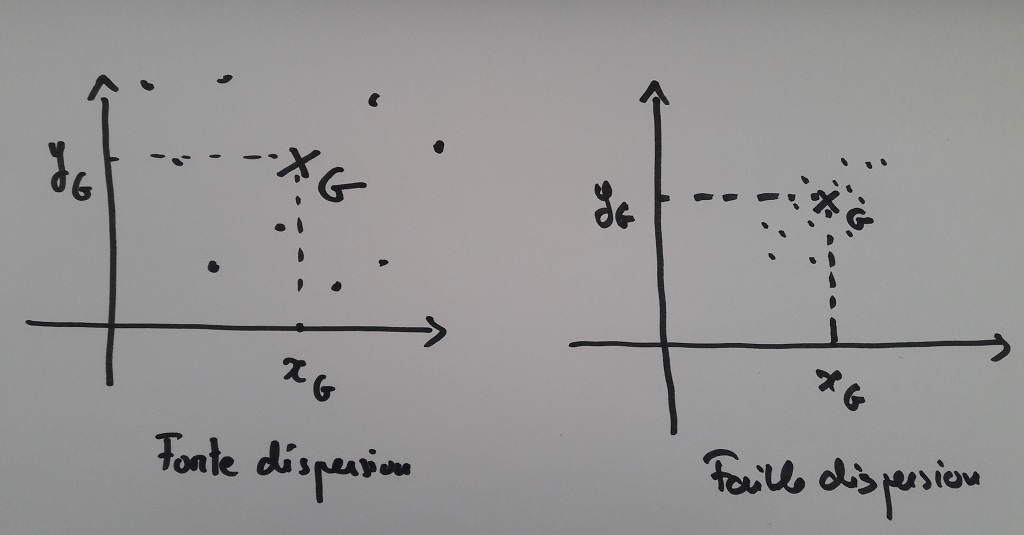 y_G
G
x_G
Forte dispersion
y_G
G
x_G
Faible dispersion